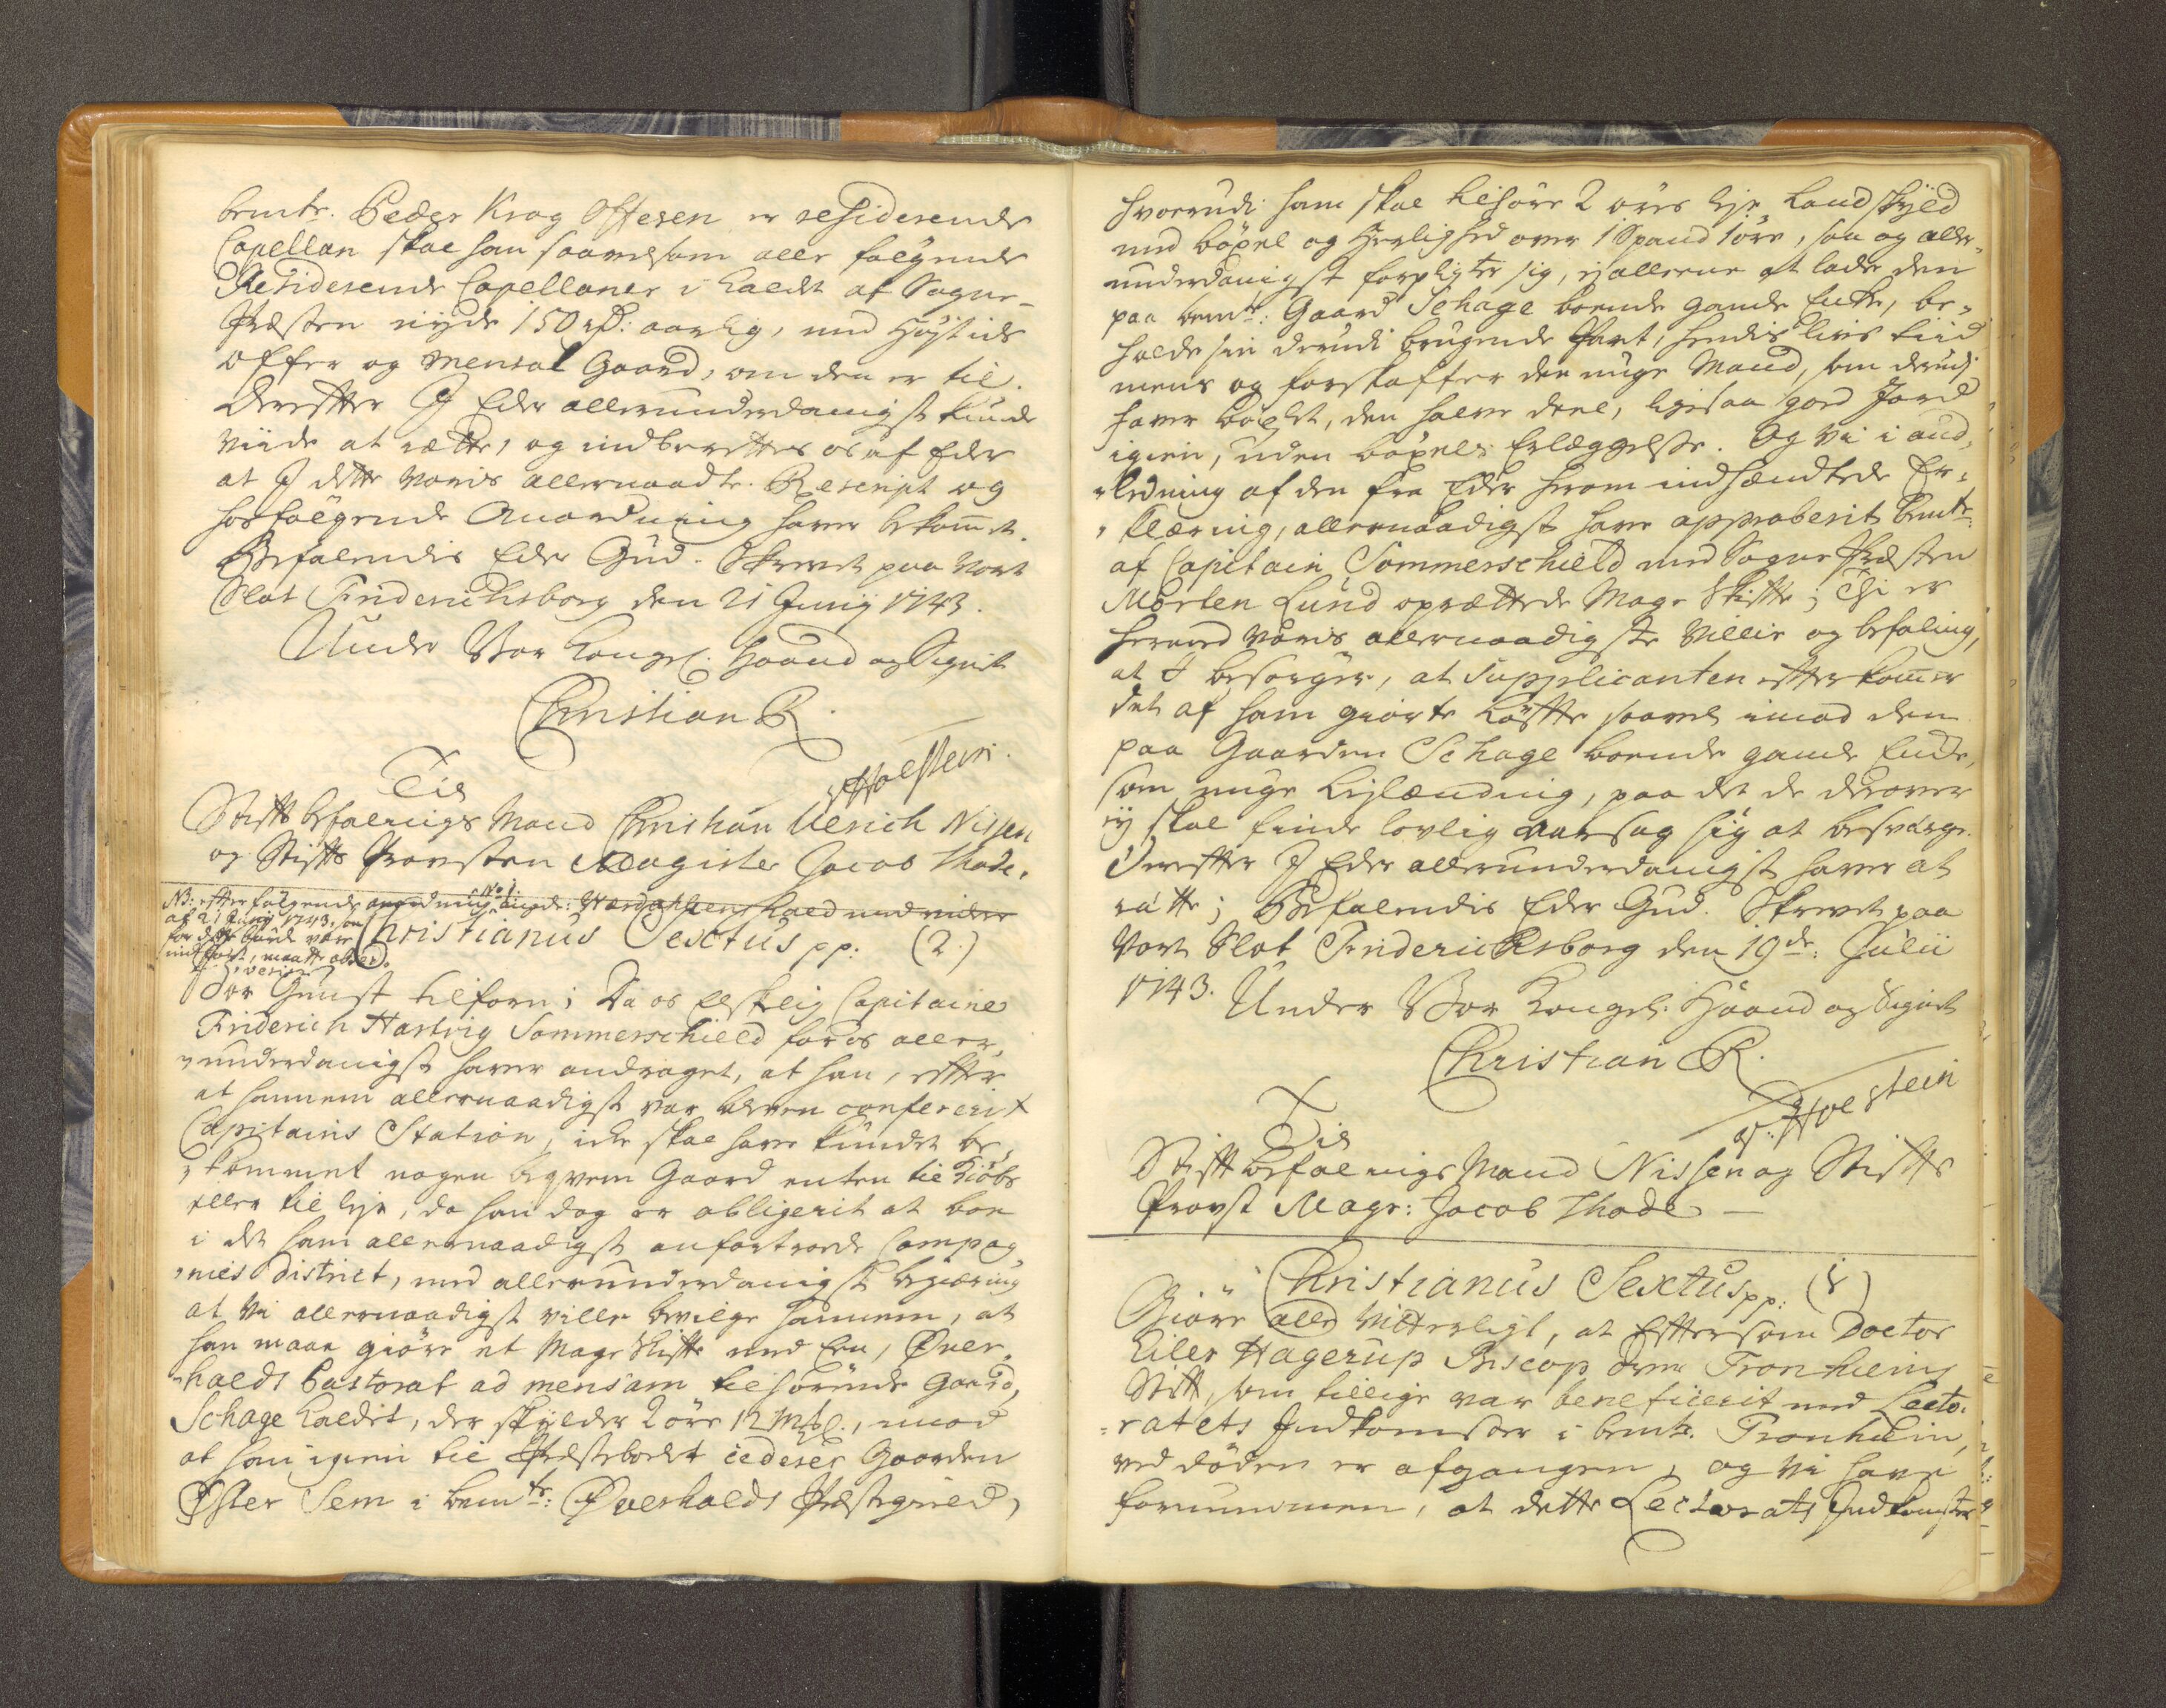 bemte. Peder Krog Offesen er residerende
Capellan skal han saavelsom alle følgende
Residerende Capellaner i Kaldet af Sogne-
Præsten nyde 150 rd: aarlig, med Høytids
offer og mensal Gaard, om den er til.
Derefter I Eder allerunderdanigst kunde
viide at rætte, og indberettes os af Eder
at I dette Voris allernaadte. Rescript og
hosfølgende Anordning haver bekommet.
Befalendis Eder Gud. Skrevet paa Vort
Slot Friderichsborg den 21 Junij 1743.
Under Vor Kongel. Haand og Signet
Christian R.
Holstein.
Til
Stiftbefalings Mand Christian Ulrich Nissen
og Stifts Provsten Magister Jacob Thode.
NB: efterfølgende anordning No 1. angde: Værdahlens Kald med videre
af 21 Junij 1743, som
før dette burde være
indført, maatte
Christianus Sextus pp: (2.)
Vor Gunst tilforn; Da os Elskelig Capitaine
Friderich Hartvig Sommerschield for os aller-
underdanigst haver andraget, at han, efter
at hannem allernaadigst var bleven confererit
Capitains Station, icke skal have kundet be-
kommet nogen beqvem Gaard enten til Kiøbs
eller til leye, da han dog er obligerit at boe
i det ham allernaadigst anfortroede Compag
nies District, med allerunderdanigst begiæring
at Vi allernaadigst ville bevilge hannem, at
han maae giøre et Mage Skifte med een, Over-
halds Pastorat ad mensam tilhørende Gaard,
Schage kaldet, der skylder 2 øre 12 Mkl., imod
at han igien til Præstebolet cederer Gaarden
Øster Sem i bemte: Overhalds Præstegield,
hvorudi ham skal tilhøre 2 øres leye Landskyld
med bøxel og Herlighed over 1 Spand 1 øre, saa og aller-
underdanigst forpligter sig, ej alleene at lade den
paa bemte: Gaard Schage boende gamle Enke, be-
holde sin derudi brugende Part, hendis livs tiid
mens og forskaffer den unge Mand, som derudj
haver bøxlet, den halve deel, ligesaa god Jord
igien, uden bøxels Erlæggelse. Og Vi i anl-
ledning af den fra Eder herom indhændtede Er-
klæring, allernaadigst have approberit bemte:
af Capitain Sommerschield med Sogne Præsten
Morten Lund oprættede Mage Skifte; Thi er
hermed Voris allernaadigste Villie og befaling,
at I besørger, at Supplicanten efterkommer
det af ham giorte Løfte saavel imod den
paa Gaarden Schage boende gamle Enke,
som unge Leylænding, paa det de derover
ej skal finde lovlig aarsag sig at besværge.
Derefter I Eder allerunderdanigst haver at
rætte; Befalendis Eder Gud. Skrevet paa
Vort Slot Friderichsborg den 19de: Julii
1743. Under Vor Kongel: Haand og Signet
Christian R.
Holstein
Til
Stiftbefalings Mand Nissen og Stifts
Provst Magr: Jacob Thode —
Christianus Sextus pp: (1)
Giøre alle Vitterligt, at Eftersom Doctor
Eiler Hagerup Biscop over Tronhiems
Stift, som tillige var beneficerit med Lecto-
ratets Indkomster i bemte. Tronhiem,
ved døden er afgangen, og Vi have
fornummen, at dette Lectorats Indkomster